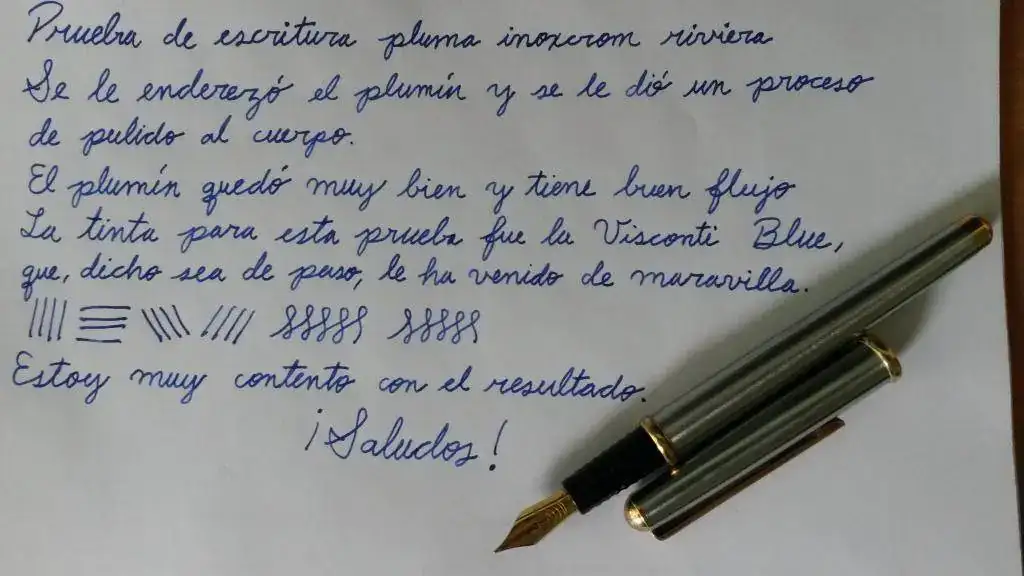 Prueba de escritura pluma inoxcrom riviera
Se le enderezó el plumín y se le dió un proceso
de pulido al cuerpo.
El plumín quedó muy bien y tiene buen flujo
La tinta para esta prueba fue la Visconti Blue,
que, dicho sea de paso, le ha venido de maravilla.
Estoy muy contento con el resultado.
¡Saludos!